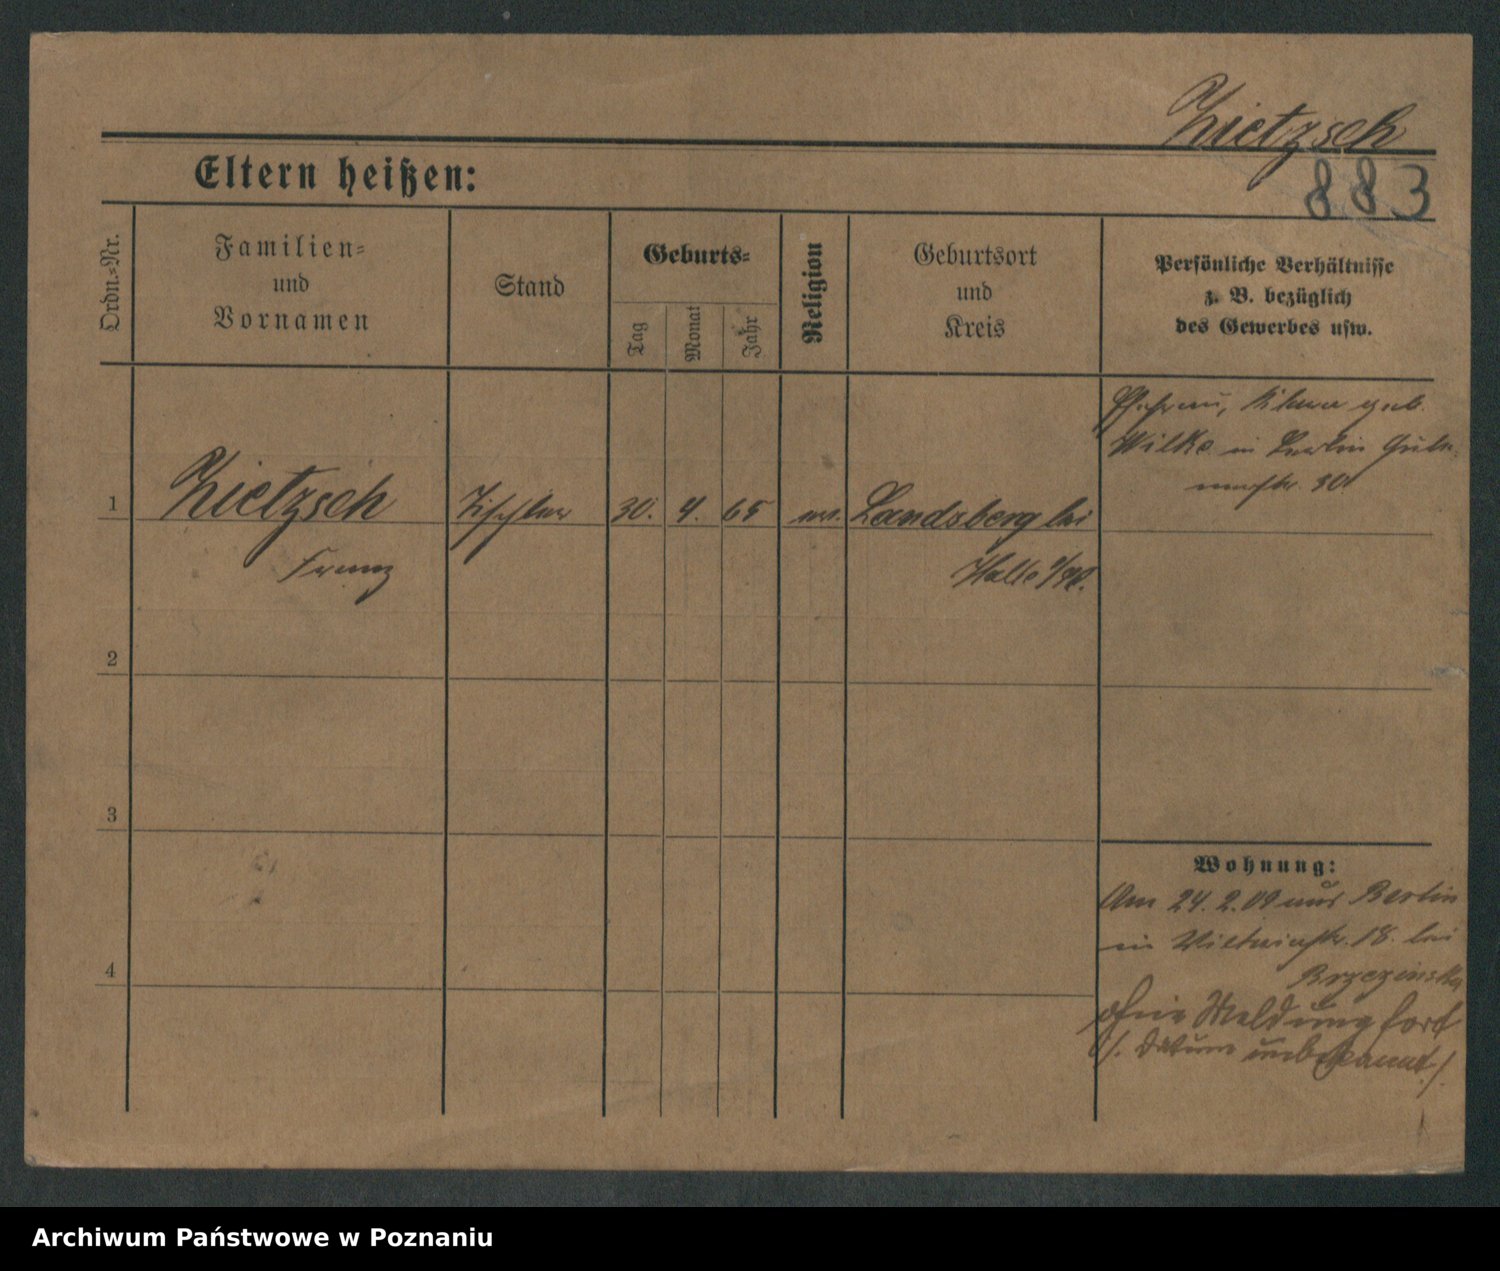 Zietzsch
883
Eltern heißen:
Ordn.=Nr.
Familien=
und
Vornamen
Stand
Geburts=
Tag
Monat
Jahr
Religion
Geburtsort
und
Kreis
Persönliche Verhältnisse
z. B. bezüglich
des Gewerbes usw.
Ehefrau, geb.
Wilke in Berlin
30.
1
Zietzsch
Tischler
30.
4.
65
ev.
Landsberg bei
Franz
Halle
2
3
4
Wohnung:
Am 24. 2. 09 aus Berlin
in 18. bei
Brzezinska
ohne Meldung fort
/. Datum unbekannt ./.
Archiwum Państwowe w Poznaniu